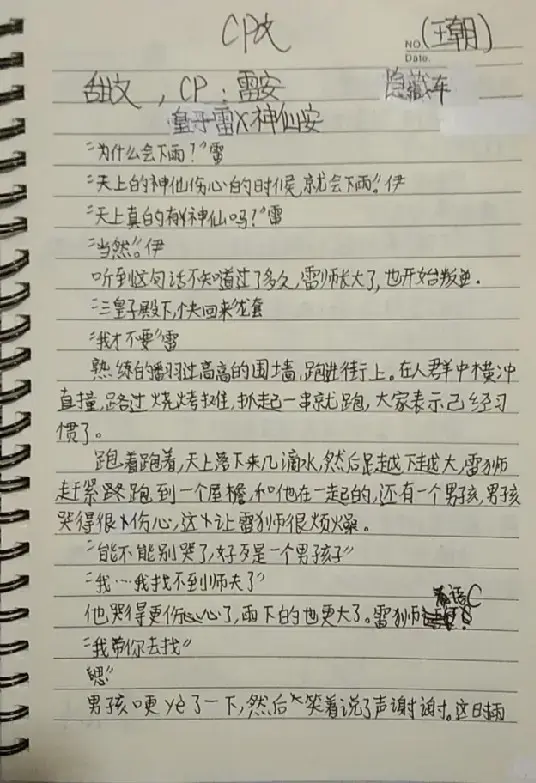 CP文
NO (王朝)
Date.
甜文，CP：雷安 隐藏车
皇子雷X神仙安
“为什么会下雨？”雷
“天上的神仙伤心的时候就会下雨。”伊
“天上真的有神仙吗？”雷
“当然。”伊
听到这句话不知道过了多久，雷狮长大了，也开始叛逆.
“三皇子殿下，快回来”龙套
“我才不要”雷
熟练的翻过高高的围墙，跑进街上。在人群中横冲
直撞，路过烧烤摊，扒起一串就跑，大家表示已经习
惯了。
跑着跑着，天上落下来几滴水，然后是越下越大，雷狮
赶紧跑到一个屋檐，和他在一起的，还有一个男孩，男孩
哭得很伤心，这让雷狮很烦燥。
“能不能别哭了，好歹是一个男孩子”
“我…我找不到师父了”
他哭得更伤心了，雨下的也更大了。雷狮
“我带你去找”
“嗯”
男孩哽yè了一下，然后笑着说了声谢谢。这时雨